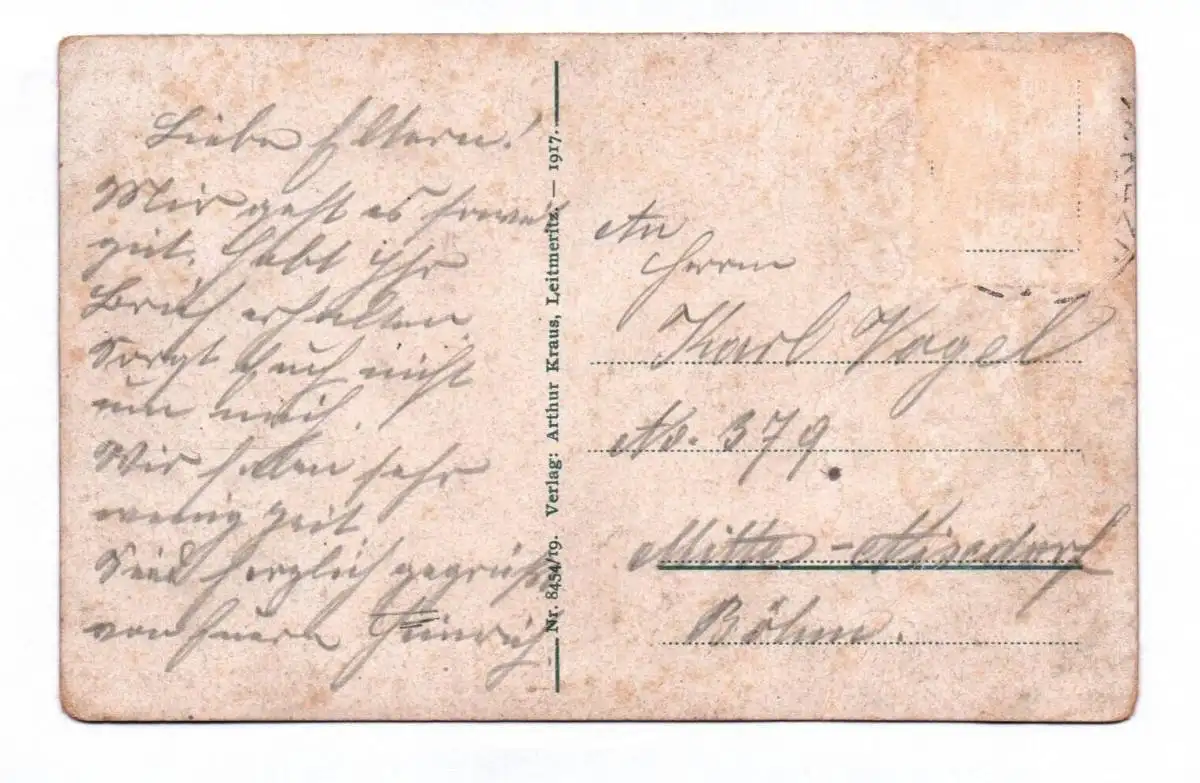 Liebe Eltern!
Mir geht es soweit
gut. Habt ihr
Brief erhalten.
Sorgt Euch nicht
um mich.
Wir haben sehr
wenig Zeit
Seid herzlich gegrüßt
von Euern Heinrich.
Nr. 8454/19. Verlag: Arthur Kraus, Leitmeritz. — 1917.
An
Herrn
Karl Vogel
No. 379.
Böhm.